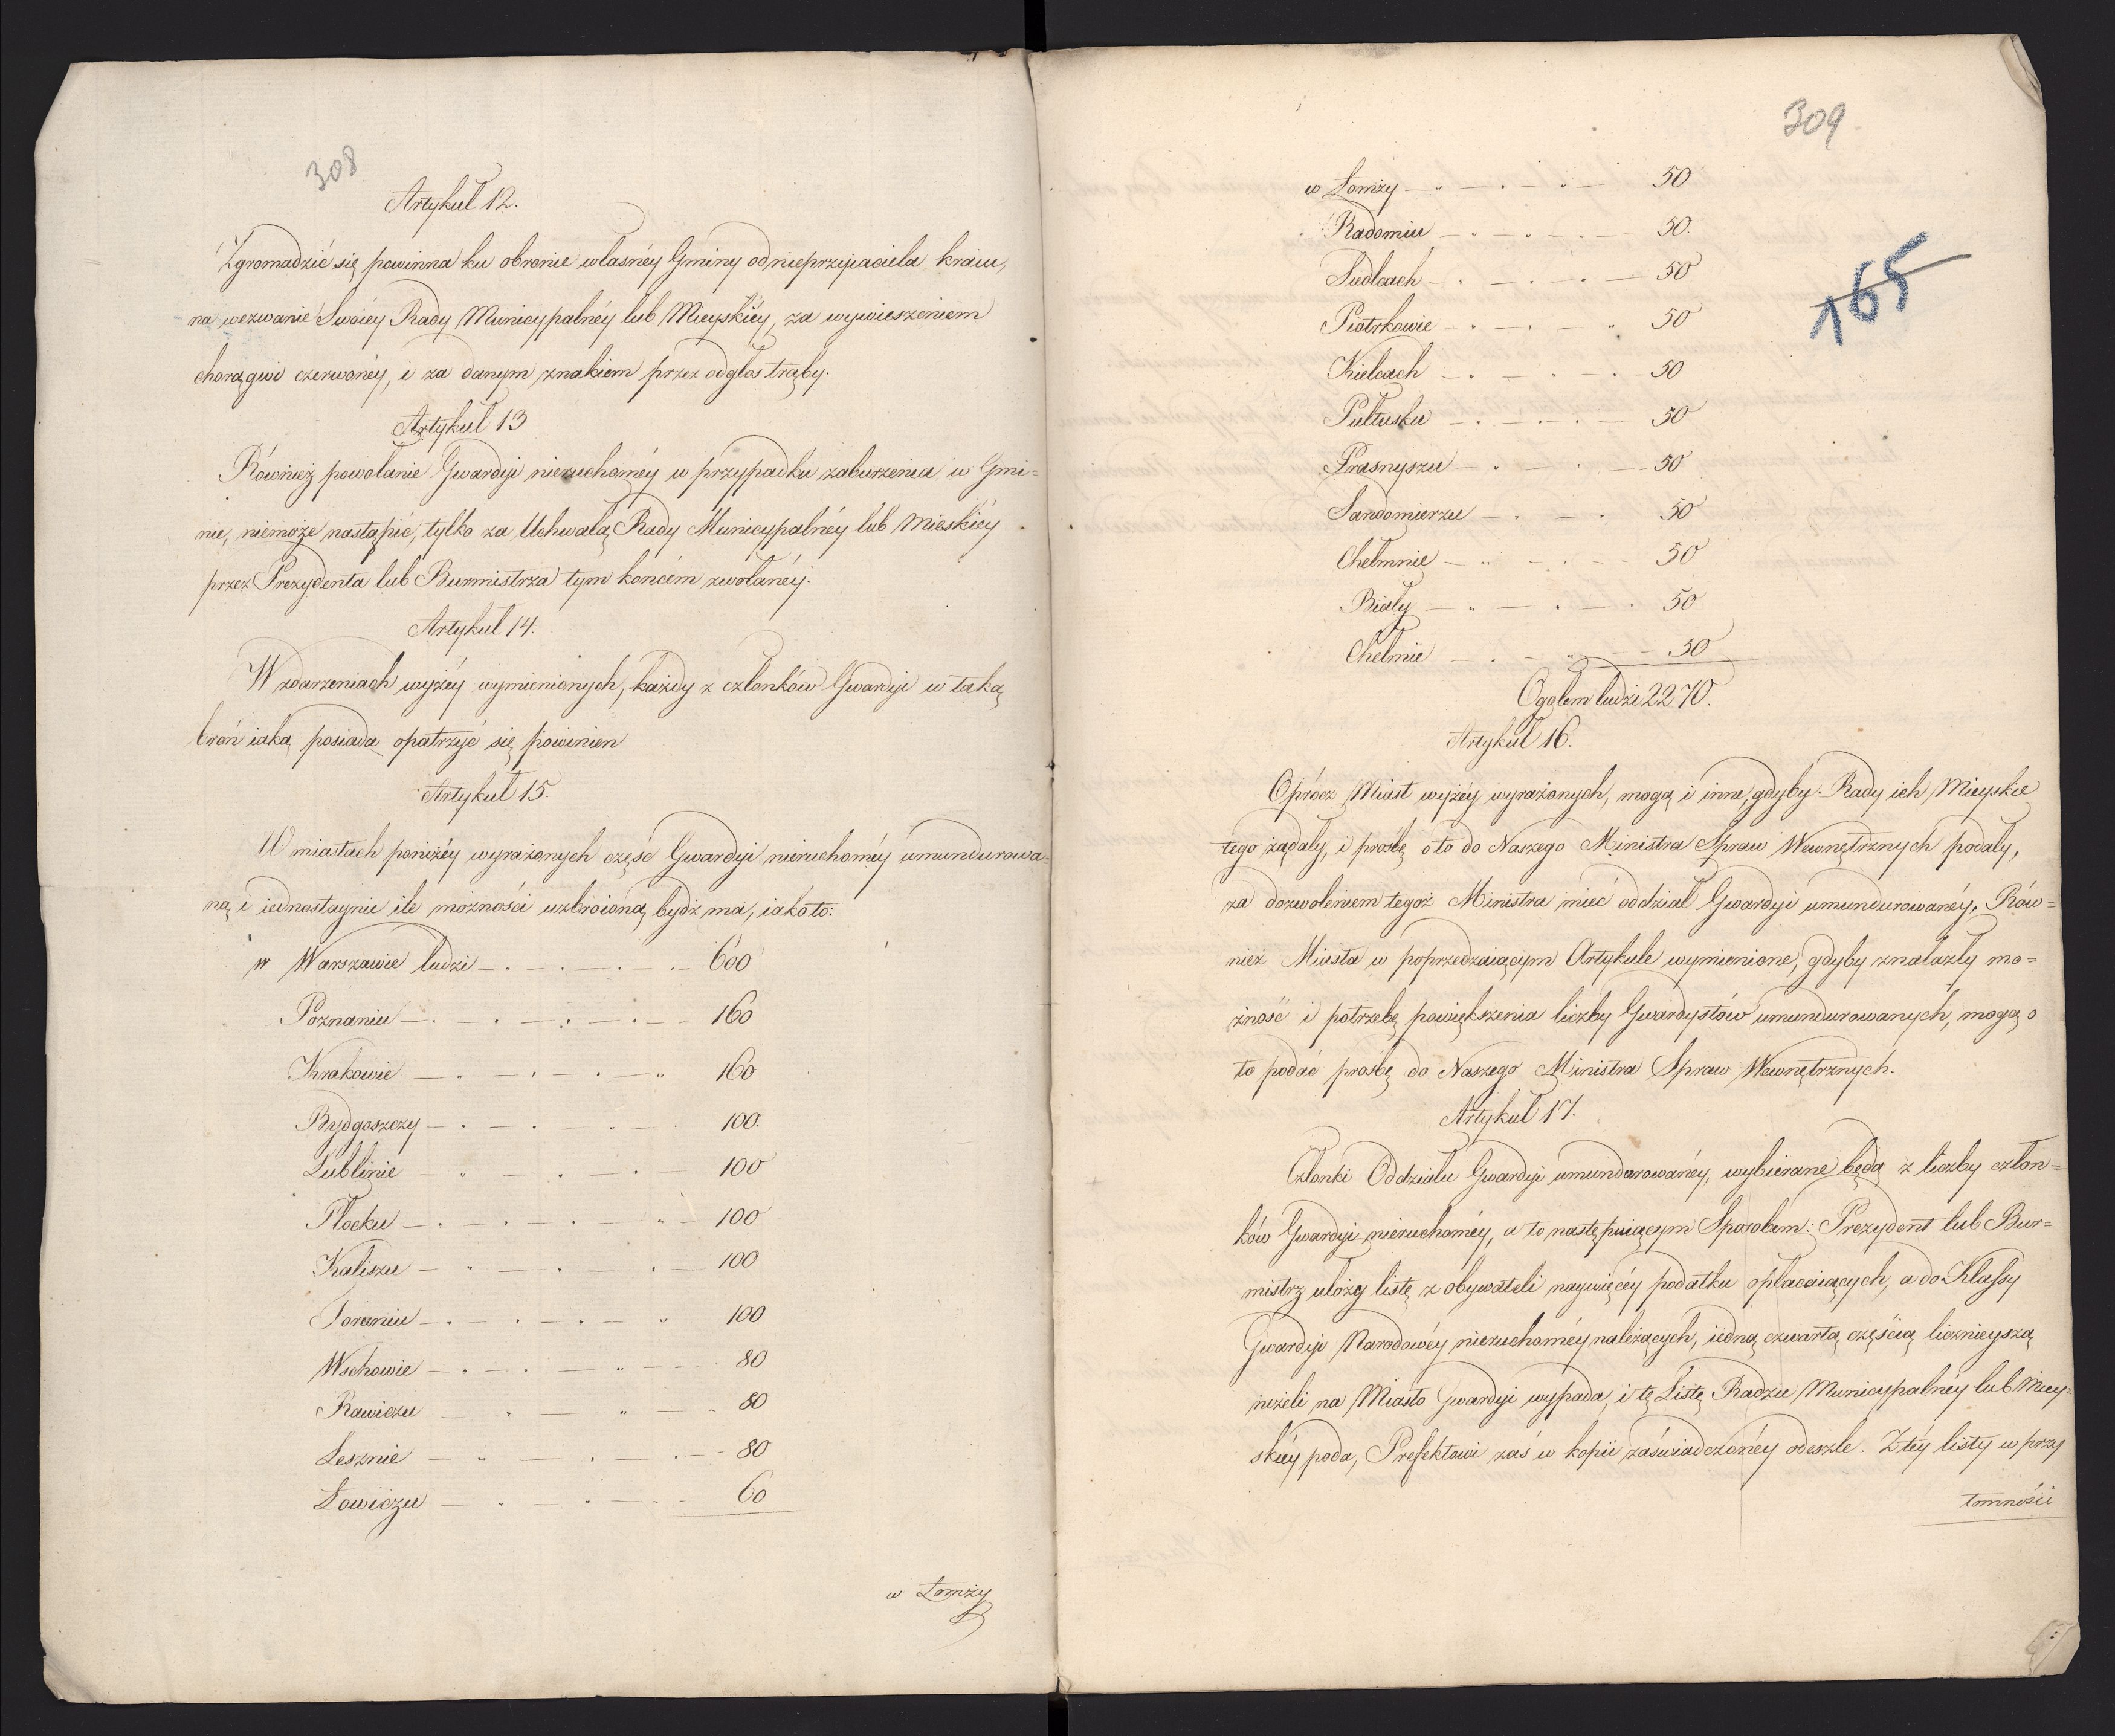 308
Artykuł 12.
Zgromadzić się powinna ku obronie własnéy Gminy od nieprzyiaciela kraiu,
na wezwanie Swoiéy Rady Municypalnéy lub Mieyskiéy, za wywieszeniem
chorągwi czerwonéy, i za danym znakiem przez odgłos trąby.
Artykuł 13
Również powołanie Gwardyi nieruchoméy w przypadku zaburzenia w Gmi=
nie, niemoże nastąpić, tylko za Uchwałą Rady Municypalnéy lub Mieskiéy
przez Prezydenta lub Burmistrza tym końcem zwołanéy.
Artykuł 14.
W zdarzeniach wyżéy wymienionych, każdy z członków Gwardyi w taką
broń iaką posiada opatrzyć się powinien
Artykuł 15.
W miastach poniżéy wyrażonych część Gwardyi nieruchoméy umundurowa=
ną i iednostaynie ile możności uzbroioną bydź ma, iako to:
w Warszawie ludzi — . — . — . — 600
Poznaniu — . — . — . — . — 160
Krakowie — . — . — . — " 160
Bydgoszczy — . — . — . — . 100.
Lublinie — . — . — . — 100
Płocku — . — . — . — " — 100
Kaliszu — . — . — . — 100
Toruniu — . — . — . — " 100
Wschowie — . — . — " — — 80
Rawiczu — . — " — — 80
Lesznie — " — . — . — 80
Łowiczu — . — . — . — 60
w Łomży
309
165
w Łomży — . — . — . — 50
Radomiu — . — . — . — 50.
Siedlcach — . — . — . — 50
Piotrkowie — . — . — " 50
Kielcach — . — . — . — 50
Pułtusku — . — . — . — 50
Prasnyszu — . — . — 50
Sandomierzu — . — . 50
Chełmnie — " — . — — 50
Biały — " — . — . 50
Chełmie — . — " — — 50
Ogołem ludzi 2270.
Artykuł 16.
Oprócz Miast wyżéy wyrażonych, mogą i inne, gdyby Rady ich Mieyskie
tego żądały, i prośbę o to do Naszego Ministra Spraw Wewnętrznych podały,
za dozwoleniem tegoż Ministra mieć oddział Gwardyi umundurowanéy. Rów=
nież Miasta w poprzedzaiącym Artykule wymienione, gdyby znalazły mo=
żność i potrzebę powiększenia liczby Gwardystów umundurowanych, mogą o
to podać prośbę do Naszego Ministra Spraw Wewnętrznych.
Artykuł 17.
Członki Oddziału Gwardyi umundurowanéy, wybierane będą z liczby człon=
ków Gwardyi nieruchoméy, a to następuiącym Sposobem: Prezydent lub Bur=
mistrz ułoży listę z obywateli naywięcéy podatku opłacaiących, a do Klassy
Gwardyi Narodowéy nieruchoméy należących, iedną czwartą częścią licznieyszą
niżeli na Miasto Gwardyi wypada, i tę Listę Radzie Municypalnéy lub Miey=
skiéy poda, Prefektowi zaś w kopii zaświadczonéy odeszle. Z téy listy w przy
tomności